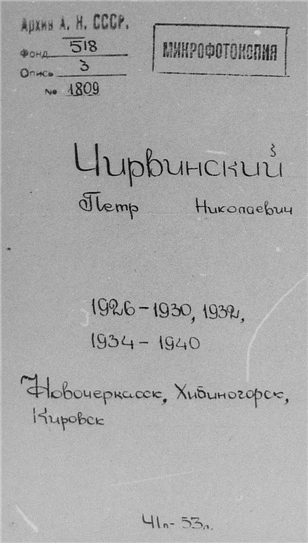 Архив А. Н. СССР.
Фонд 518
Опись 3
№ 1809
МИКРОФОТОКОПИЯ
Чирвинский
Петр Николаевич
1926-1930, 1932,
1934-1940
Новочеркасск, Хибиногорск,
Кировск
41п-53л.